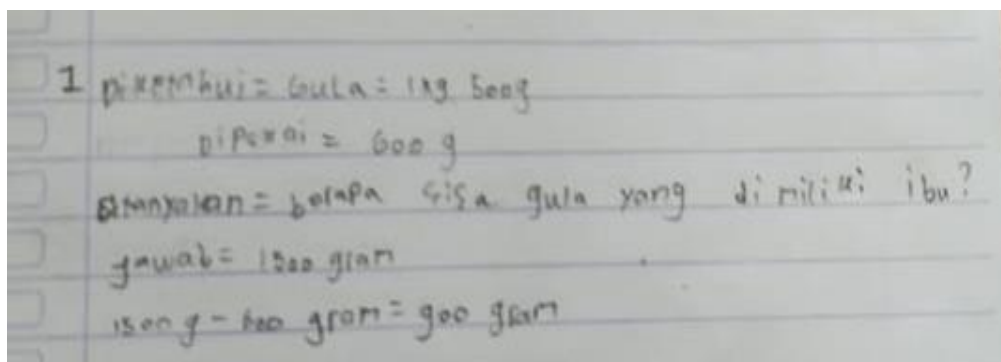 1 Diketahui = Gula = 1kg 500g
Dipakai = 600 g
Ditanyakan = berapa sisa gula yang dimiliki ibu?
Jawab = 1500 gram
1500 g - 600 gram = 900 gram